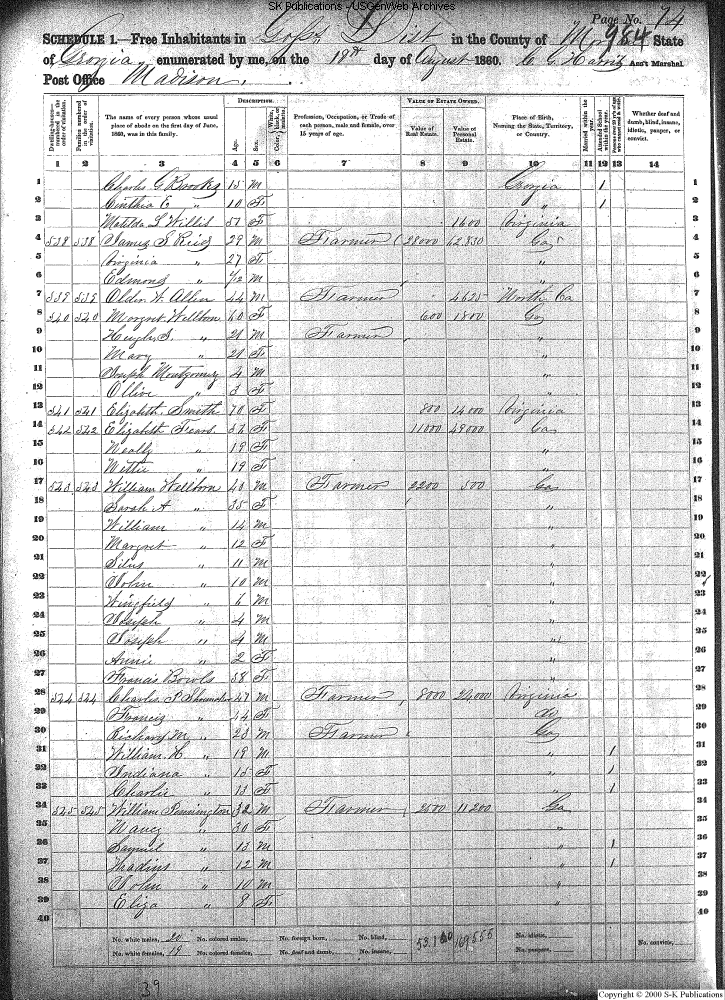 SK Publications - USGenWeb Archives
Page No. 74
984
SCHEDULE 1.—Free Inhabitants in Goss Dist in the County of State
of Georgia, enumerated by me, on the 18th day of August 1860. C G Harris Ass't Marshal
Post Office Madison.
Dwelling-houses—numbered in the order of visitation.
Families numbered in the order of visitation.
The name of every person whose usual place of abode on the first day of June, 1860, was in this family.
DESCRIPTION.
Age.
Sex.
Color, White, black, or mulatto.
Profession, Occupation, or Trade of each person, male and female, over 15 years of age.
VALUE OF ESTATE OWNED.
Value of Real Estate.
Value of Personal Estate.
Place of Birth, Naming the State, Territory, or Country.
Married within the year.
Attended School within the year.
Whether deaf and dumb, blind, insane, idiotic, pauper, or convict.
1 2 3 4 5 6 7 8 9 10 11 12 13 14
1 Charles G Brooks 15 M Georgia / 1
2 Cinthia C " 10 F " / 2
3 Matilda L Willis 57 F 1600 Virginia 3
4 538 538 James S Reid 29 M Farmer 28000 62830 Ga 4
5 Virginia " 27 F " 5
6 Edmond " M " 6
7 539 539 W. Allen 44 M Farmer 4625 North Ca 7
8 540 540 Margret Wellborn 60 F 600 1800 Ga 8
9 Hugh " 21 M Farmer " 9
10 Mary " 21 F " 10
11 Joseph Montgomery 4 M " 11
12 Ollive " 3 F " 12
13 541 541 Elizabeth Smith 70 F 800 14000 Virginia 13
14 542 542 Elizabeth Fears F 11000 49000 Ga 14
15 " 19 F " 15
16 " 19 F " 16
17 543 543 William Wellborn M Farmer 2200 500 Ga 17
18 Sarah A " 35 F " 18
19 William " 14 M " 19
20 Margret " 12 F " 20
21 Silus " 11 M " 21
22 John " 10 M " 22
23 Wingfield " 6 M " 23
24 Joseph " 4 M " 24
25 Joseph " 4 M " 25
26 Annie " 2 F " 26
27 Francis Bowls 58 F " 27
28 544 544 Charles P 47 M Farmer 8000 24000 Virginia 28
29 Francis " 44 F 29
30 Richard M " 23 M Farmer Ga 30
31 William H " 19 M " / 31
32 Indiana " 15 F " / 32
33 Charlie " 13 F " / 33
34 545 545 William Pennington 32 M Farmer 2500 11200 Ga 34
35 Nancy " 30 F " 35
36 Samuel " 13 M " / 36
37 " 12 M " / 37
38 John " 10 M " 38
39 Eliza " 8 F " 39
40 40
No. white males, 20 No. colored males, No. foreign born, No. blind, 169555 No. idiotic, No. convicts,
No. white females, 19 No. colored females, No. deaf and dumb, No. insane, No. paupers,
39
Copyright © 2000 S-K Publications